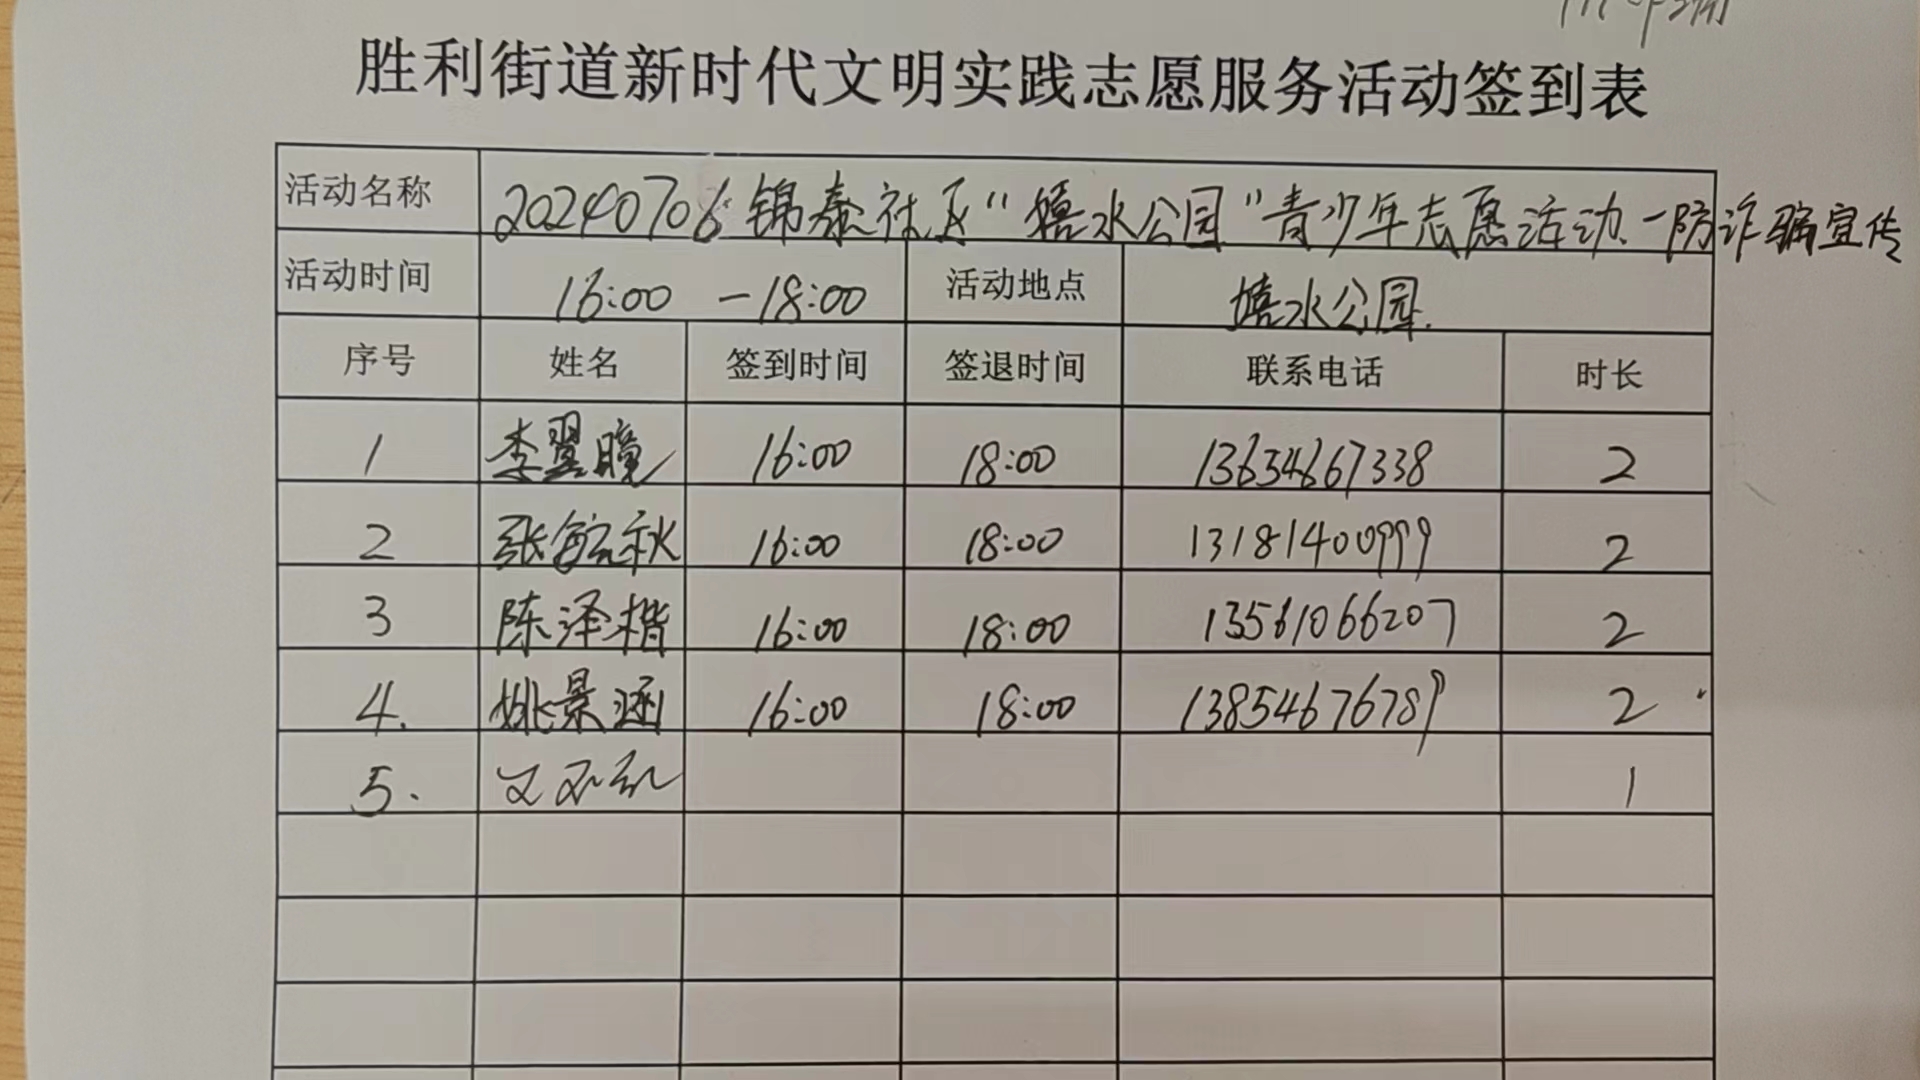 胜利街道新时代文明实践志愿服务活动签到表
活动名称 20240706锦泰社区“嬉水公园”青少年志愿活动.-防诈骗宣传
活动时间 16:00 -18:00 活动地点 嬉水公园.
序号 姓名 签到时间 签退时间 联系电话 时长
1 李翼瞳 16:00 18:00 13654667338 2
2 张毓秋 16:00 18:00 13181400999 2
3 陈泽楷 16:00 18:00 13561066207 2
4. 姚景涵 16:00 18:00 13854676789 2
5. 1